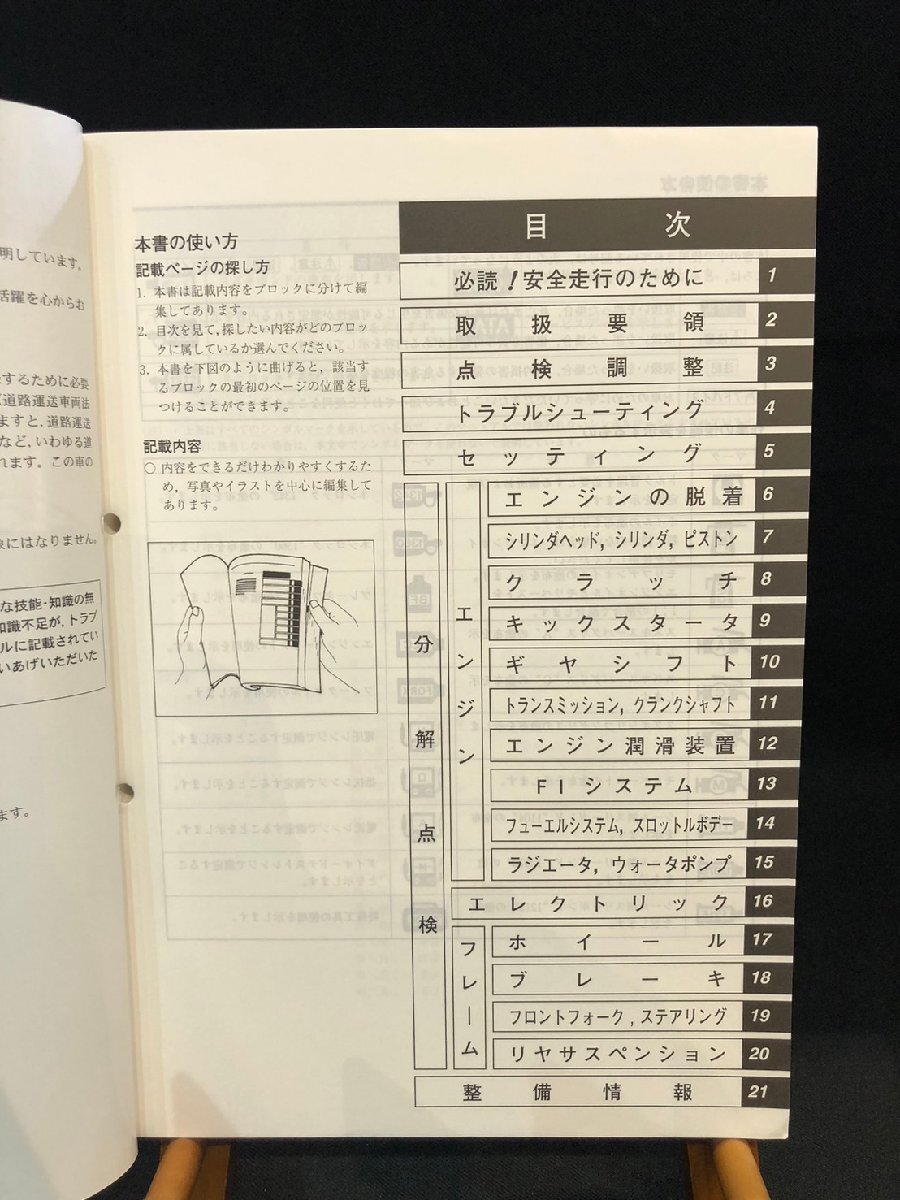 明しています。
活躍を心からむ
するために必要
道路運送車両法
ますと,道路運送
など,いわゆる道
れます。この車の
象にはなりません。
な技能・知識の無
知識不足が,トラブ
ルに記載されてい
いあげいただいた
ます。
本書の使い方
記載ページの探し方
1. 本書は記載内容をブロックに分けて編
集してあります。
2. 目次を見て,探したい内容がどのブロッ
クに属しているか選んでください。
3. 本書を下図のように曲げると,該当す
るブロックの最初のページの位置を見
つけることができます。
記載内容
○ 内容をできるだけわかりやすくするた
め,写真やイラストを中心に編集して
あります。
目次
必読!安全走行のために 1
取扱要領 2
点検調整 3
トラブルシューティング 4
セッティング 5
分解点検
エンジン
エンジンの脱着 6
シリンダヘッド,シリンダ,ピストン 7
クラッチ 8
キックスタータ 9
ギヤシフト 10
トランスミッション,クランクシャフト 11
エンジン潤滑装置 12
FIシステム 13
フューエルシステム,スロットルボデー 14
ラジエータ,ウォータポンプ 15
エレクトリック 16
フレーム
ホイール 17
ブレーキ 18
フロントフォーク,ステアリング 19
リヤサスペンション 20
整備情報 21